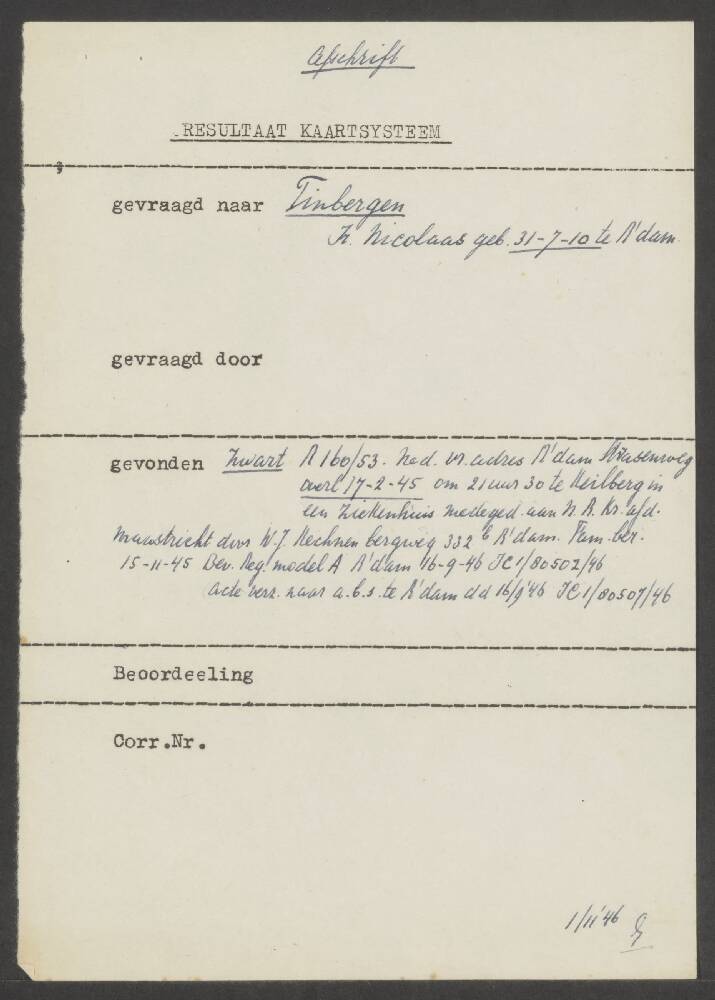 Afschrift
RESULTAAT KAARTSYSTEEM
gevraagd naar Tinbergen
Fr. Nicolaas geb. 31-7-10 te A'dam.
gevraagd door
gevonden Zwart A 160/53. Ned. vr. adres A'dam
overl 17-2-45 om 21 uur 30 te Heilberg in
een Ziekenhuis medeged. aan N.R.Kr. afd.
Maastricht door W.J. bergweg 332 A'dam. Fam. ber.
15-11-45 Bev. Reg. model A A'dam 16-9-46 JC1/80502/46
acte verz. naar a.b.s. te A'dam dd 16/9'46 JC1/80507/46
Beoordeeling
Corr.Nr.
1/11'46